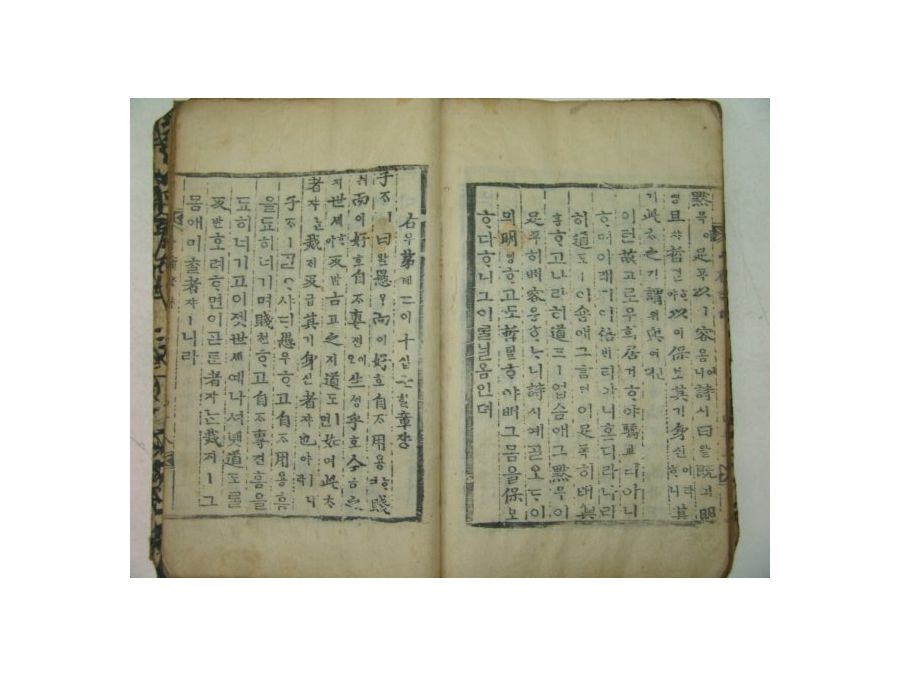 黙묵이足죡以이容용이니詩시曰왈旣긔明
명且챠哲텰ᄒᆞ야以이保보其기身신이라ᄒᆞ니其
기此ᄎᆞ之지謂위與여ᅟᅵᆫ뎌
이런故고로우희居거ᄒᆞ야驕교티아니
ᄒᆞ며아래되여倍ᄇᆡ티아니ᄒᆞᄂᆞᆫ디라나라
히道도ㅣ이숌애그言언이足죡히ᄡᅥ興
흥ᄒᆞ고나라히道도ㅣ업슴애그黙묵이
足죡히ᄡᅥ容용ᄒᆞᄂᆞ니詩시예ᄀᆞᆯ오ᄃᆡ이
믜明명ᄒᆞ고ᄯᅩ哲텰ᄒᆞ야ᄡᅥ그몸을保보
ᄒᆞ다ᄒᆞ니그이ᄅᆞᆯ닐옴인뎌
右우第뎨二이十십七칠章쟝
子ᄌᆞㅣ曰왈愚우而이好호自ᄌᆞ用용ᄒᆞ며賤
쳔而이好호自ᄌᆞ專젼이오生ᄉᆡᆼ乎호今금之
지世셰ᄒᆞ야反반古고之지道도ㅣ면如여此ᄎᆞ
者쟈ᄂᆞᆫ烖ᄌᆡ及급其기身신者쟈也야ㅣ니라
子ᄌᆞㅣᄀᆞᆯᄋᆞ샤ᄃᆡ愚우ᄒᆞ고自ᄌᆞ用용홈
을됴히너기며賤쳔ᄒᆞ고自ᄌᆞ專젼홈을
됴히너기고이젯世셰예나셔녯道도ᄅᆞᆯ
反반호려ᄒᆞ면이ᄀᆞᆮᄐᆞᆫ者쟈ᄂᆞᆫ烖ᄌᆡㅣ그
몸애미츨者쟈ㅣ니라